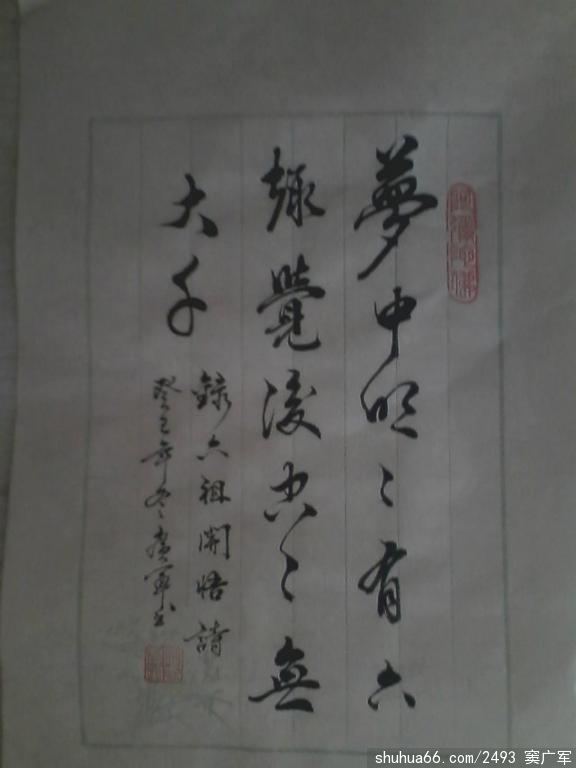 阿彌陀佛
夢中明〻有六
趣覺後空〻無
大千
錄六祖開悟詩
癸巳年冬廣軍书
shuhua66.com/2493 窦广军